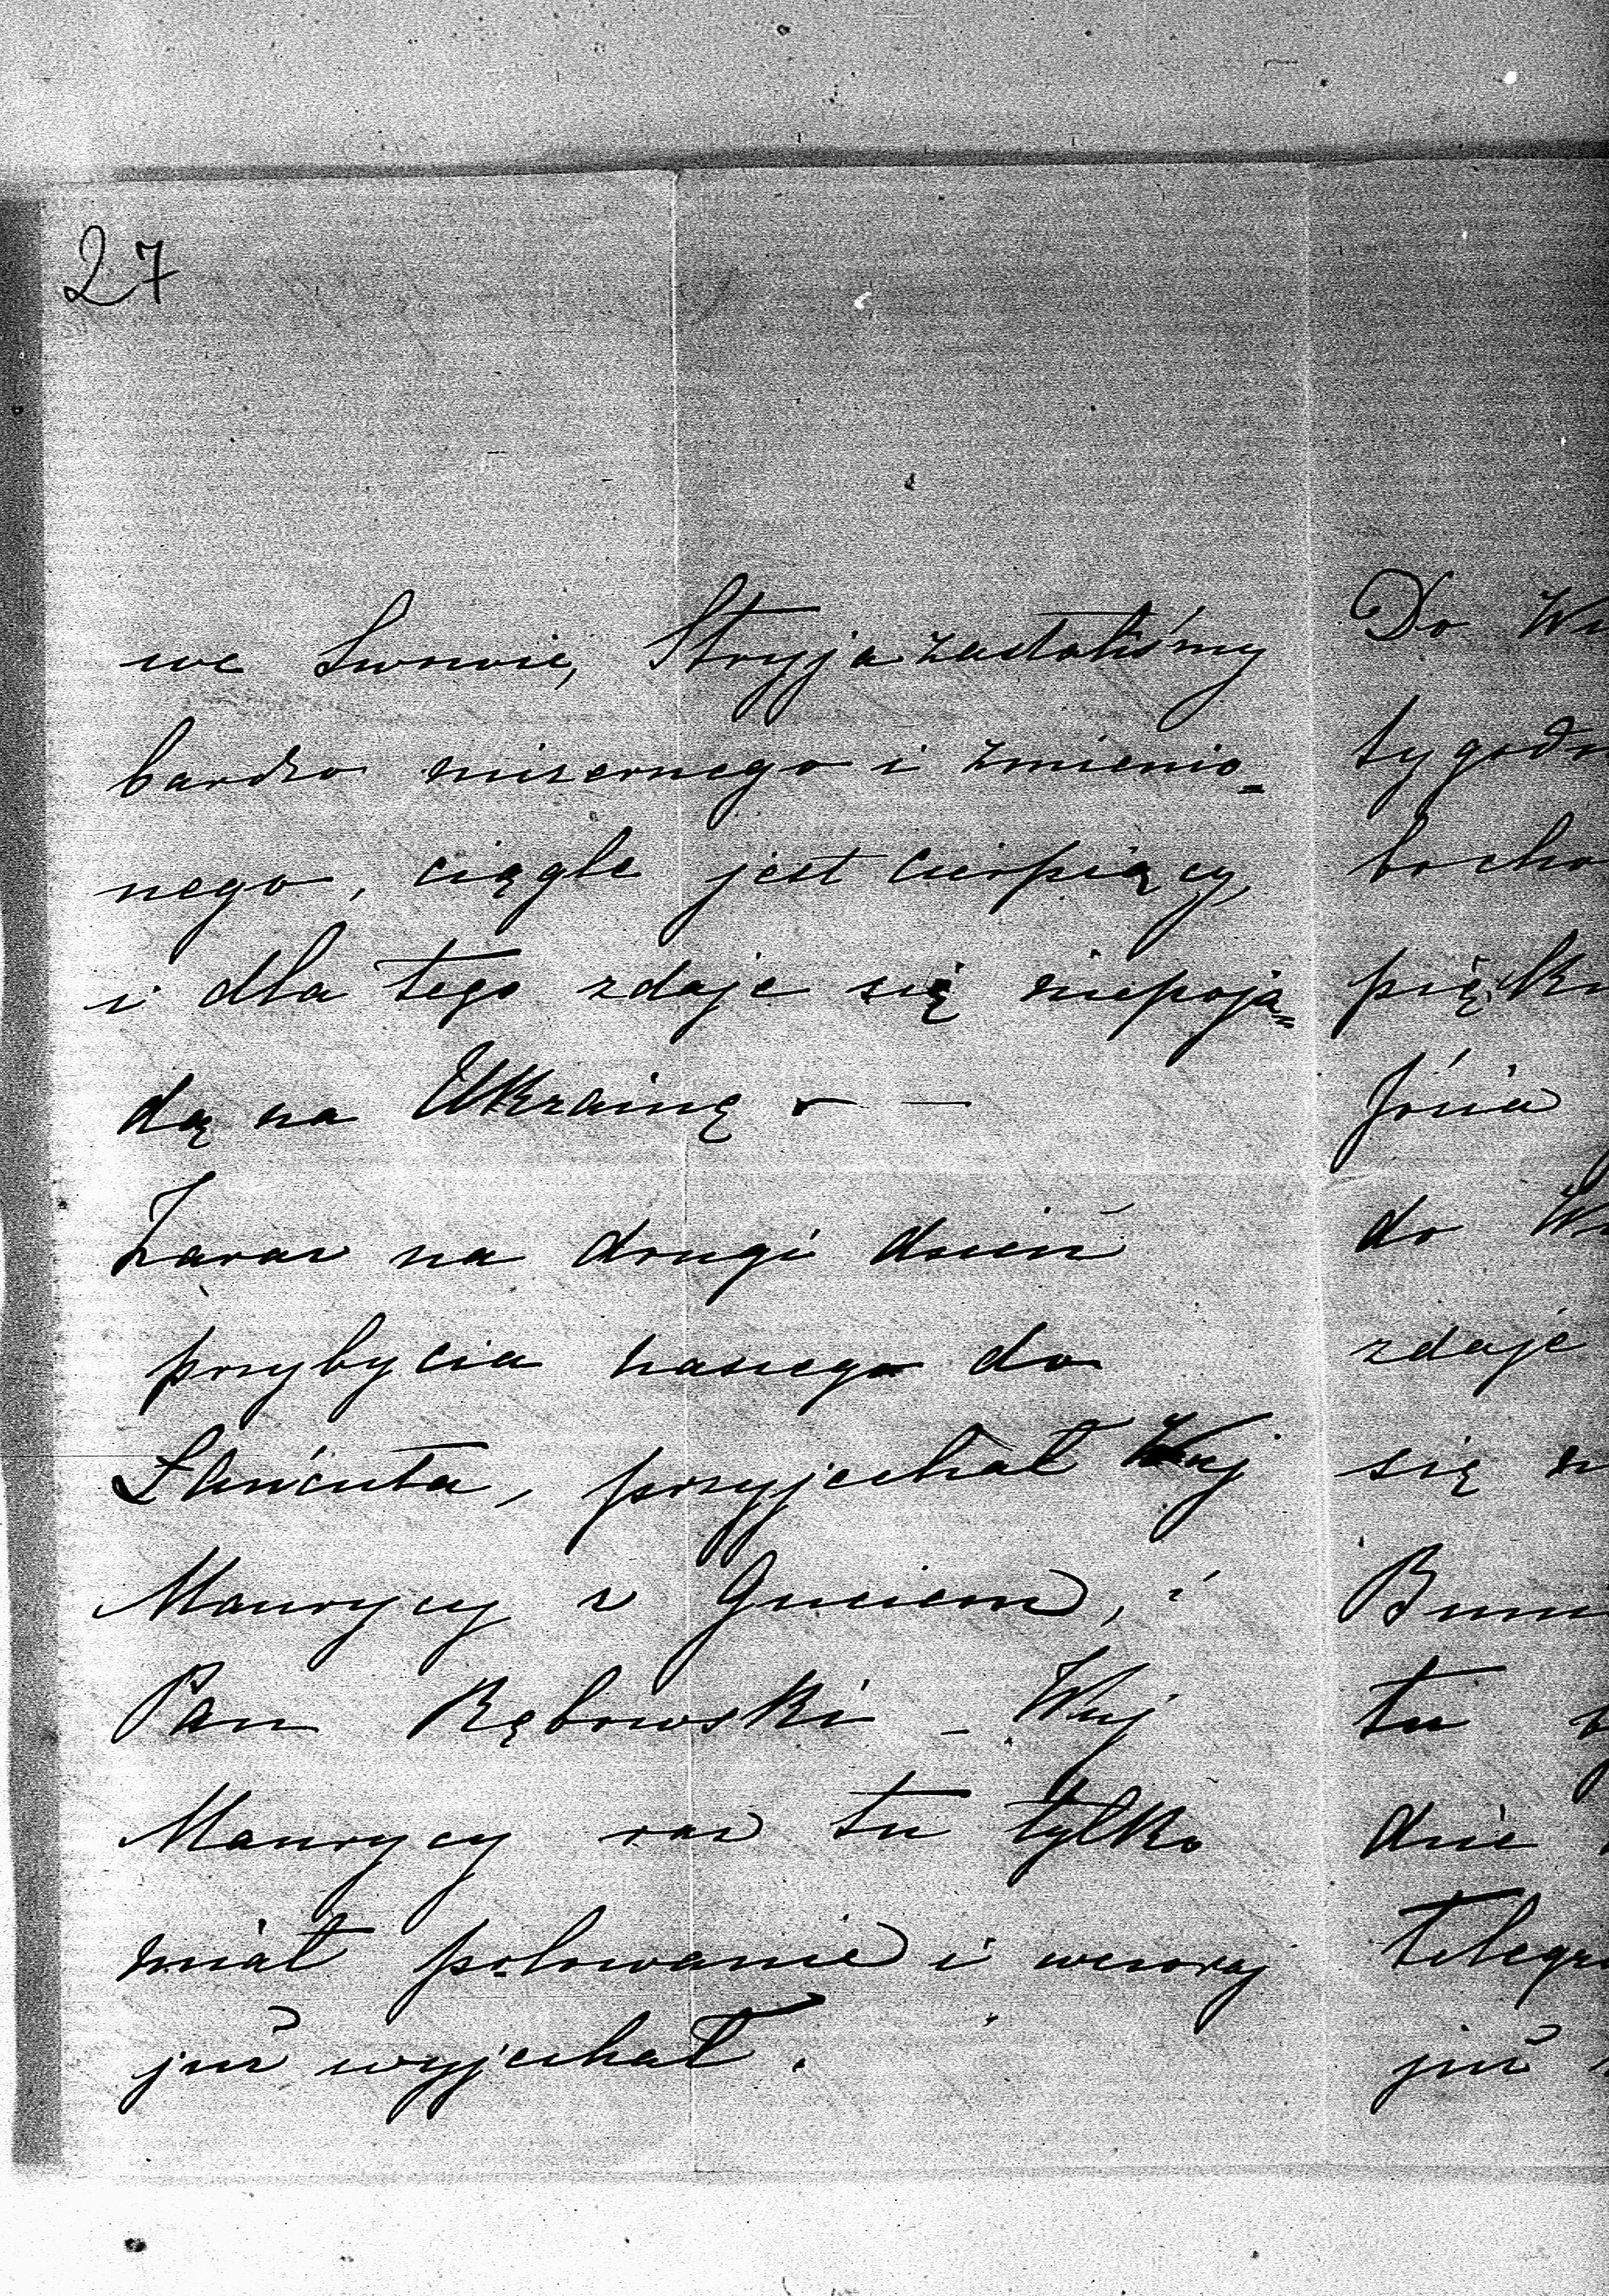 27
we Lwowie, Stryja zastaliśmy
bardzo mizernego i zmienio=
nego, ciągle jest cierpiący,
i dla tego zdaje się niepoja=
dą na Ukrainę — —
Zaraz na drugi dzień
przybycia naszego do
Łańcuta, przyjechał Wuj
Maurycy z Guciem, i
Pan Rębowski – Wuj
Maurycy raz tu tylko
miał polowanie i wczoraj
już wyjechał.
Do
tygodn
pięk
Józia
do
zdaje
się
tu
dnie
telegr
już